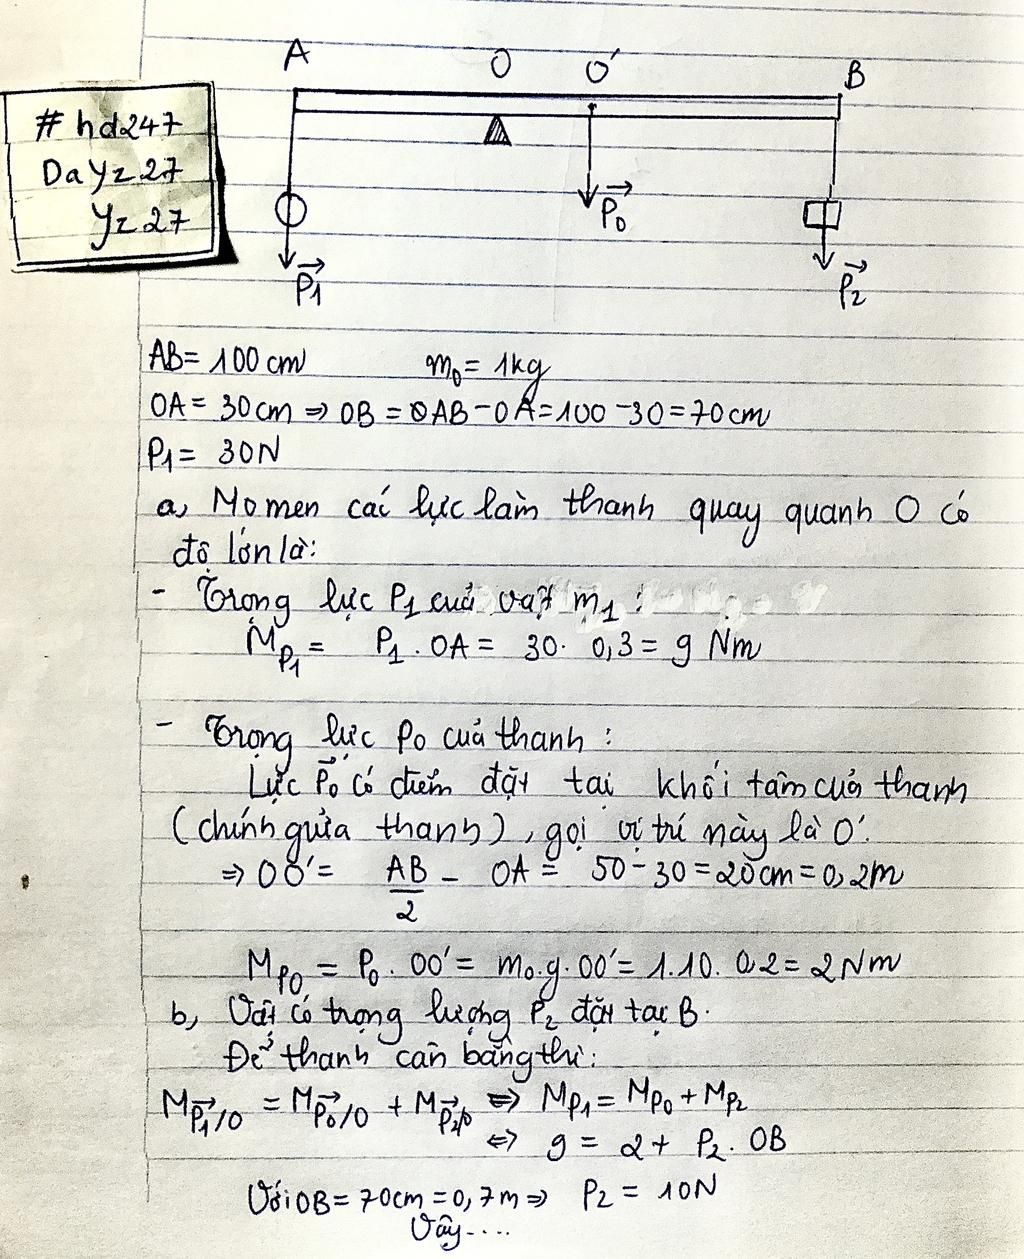 A O O' B
#hd247
DaYz27
Yz27
P₀
P₁ P₂
AB = 100 cm m₀ = 1kg
OA = 30cm ⇒ OB = AB - OA = 100 - 30 = 70cm
P₁ = 30N
a, Momen các lực làm thanh quay quanh O có
độ lớn là:
- Trọng lực P₁ của vật m₁ :
M_P₁ = P₁ . OA = 30 . 0,3 = 9 Nm
- Trọng lực P₀ của thanh :
Lực P₀ có điểm đặt tại khối tâm của thanh
(chính giữa thanh), gọi vị trí này là O'.
⇒ OO' = AB/2 - OA = 50 - 30 = 20cm = 0,2m
M_P₀ = P₀ . OO' = m₀.g.OO' = 1.10. 0,2 = 2 Nm
b, Vật có trọng lượng P₂ đặt tại B.
Để thanh cân bằng thì:
M_P₁/O = M_P₀/O + M_P₂/O ⇔ M_P₁ = M_P₀ + M_P₂
⇔ 9 = 2 + P₂ . OB
Với OB = 70cm = 0,7m ⇒ P₂ = 10N
Vậy....